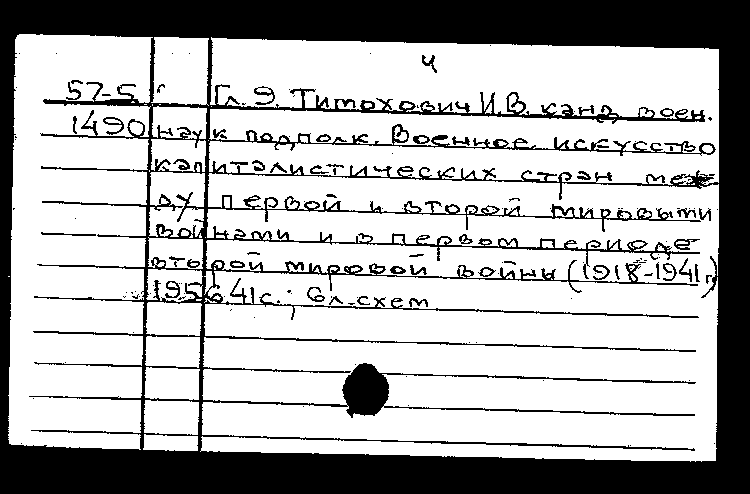 4
57-5 Гл. 9. Тимохович И.В. канд. воен.
1490 наук подполк. Военное искусство
капиталистических стран меж
ду первой и второй мировыми
войнами и в первом периоде
второй мировой войны (1918-1941 г.)
1956. 41 с.; 6 л. схем